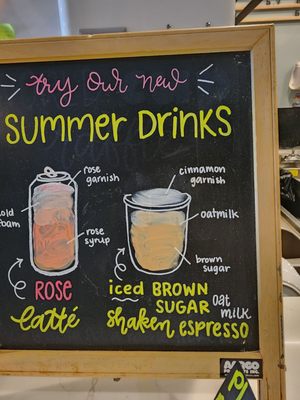 try our new
SUMMER DRINKS
rose
garnish
rose
syrup
ROSE
latté
cinnamon
garnish
oatmilk
brown
sugar
iced BROWN
SUGAR oat
milk
shaken espresso